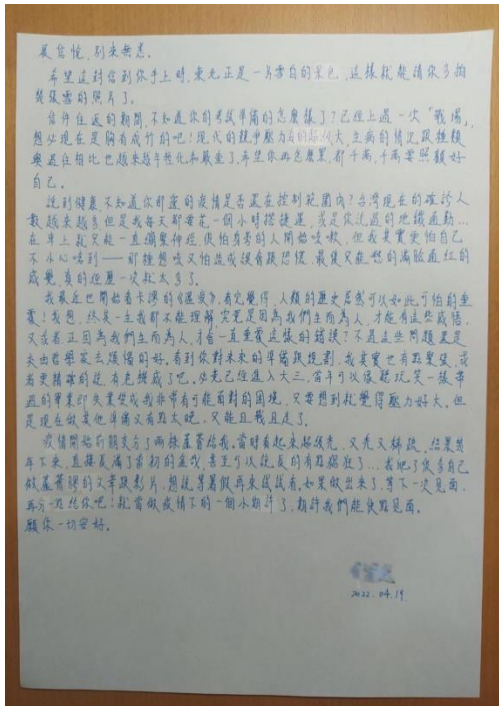 展信悅,別來無恙。
希望這封信到你手上時,東光正是一片雪白的景色,這樣就能請你多拍
幾張雪的照片了。
信件往返的期間,不知道你的考試準備的怎麼樣了?已經上過一次「戰場」,
想必現在是胸有成竹的吧!現代的競爭壓力真的超級大,生病的情況跟種類
與過往相比也越來越年輕化和嚴重了,希望你再怎麼累,都千萬、千萬要照顧好
自己。
說到健康不知道你那邊的疫情是否還在控制範圍內?台灣現在的確診人
數越來越多,但是我每天都要花一個小時搭捷運,或是你說過的地鐵通勤…
在車上就只能一直繃緊神經,很怕身旁的人開始咳嗽,但我其實更怕自己
不小心嗆到——那種想咳又怕造成誤會跟恐慌,最後只能憋的滿臉通紅的
感覺,真的經歷一次就太多了。
我最近也開始看卡繆的《瘟疫》,看完覺得,人類的歷史居然可以如此可怕的重
覆!我想,終其一生我都不能理解,究竟是因為我們生而為人,才能有這些感悟,
又或者正因為我們生而為人,才會一直重覆這樣的錯誤?不過這些問題還是
交由哲學家去煩惱的好。看到你對未來的準備跟規劃,我其實也有點緊張,或
者更精確的說,有危機感了吧。必竟已經進入大三,當年可以依聽玩笑一張帶
過的畢業即失業變成我非常有可能面對的困境,只要想到就覺得壓力好大。但
是現在做其他準備又有點太晚,只能且戰且走了。
疫情開始前朋友分了兩株蘆薈給我。當時看起來好後禿,又禿又稀疏,結果幾
年下來,直接長滿了當初的盆栽,甚至可以說長的有點擁擠了…我吧了很多自己
做蘆薈膠的文章跟影片,想說等暑假再來試試看,如果做出來了,等下一次見面,
再分一點給你吧!就當做疫情下的一個小期許了,期許我們能快點見面。
願你一切安好。
2022.04.19